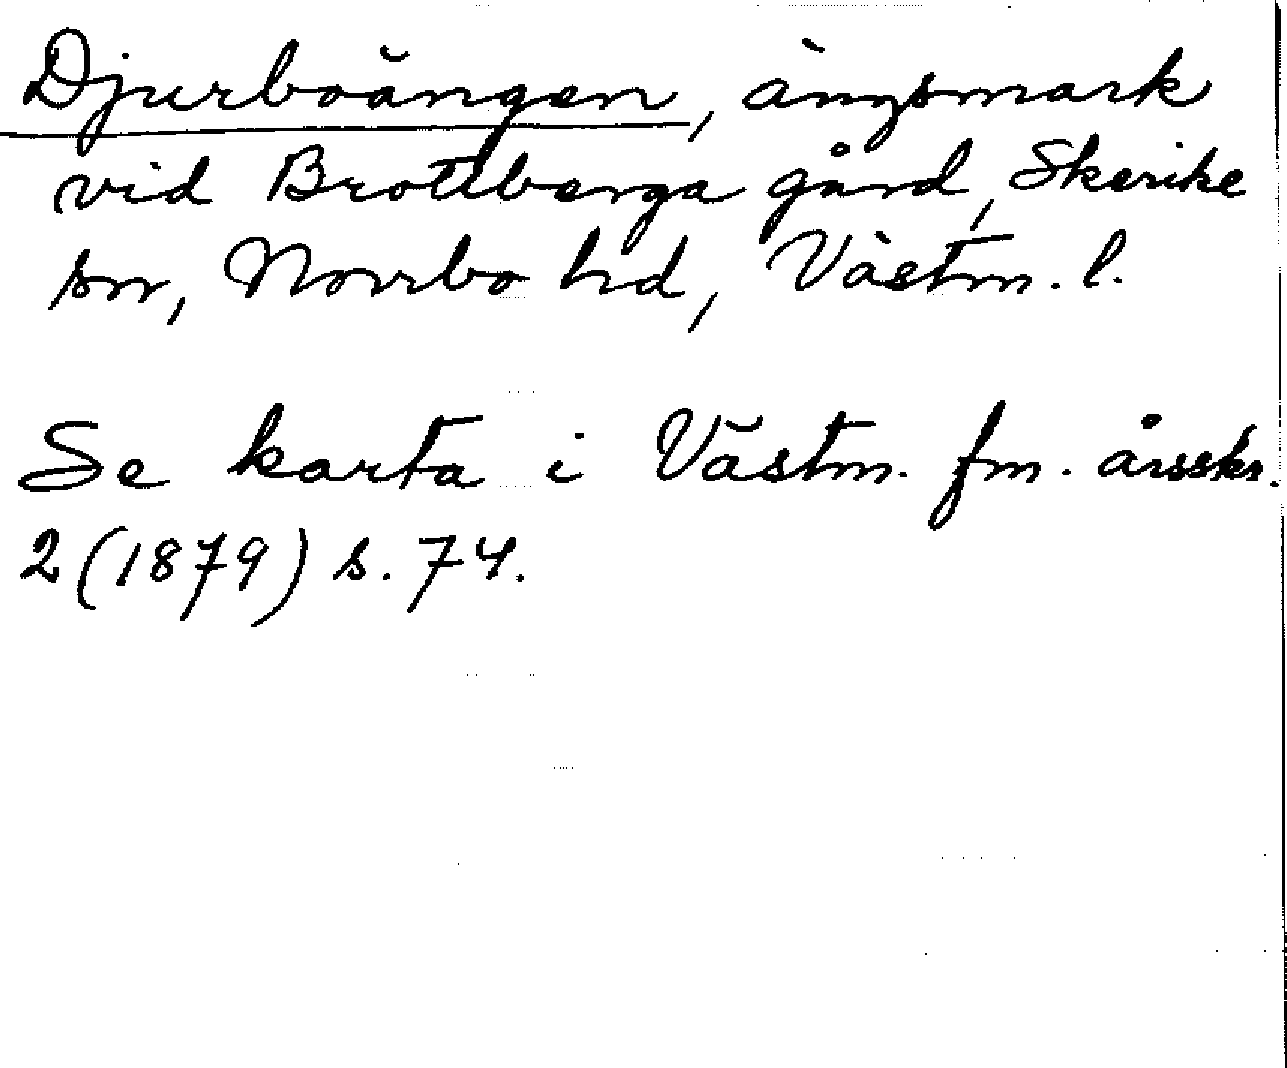 Djurboängen, ängsmark
vid Brottberga gård, Skerike
sn, Norrbo hd, Västm. l.
Se karta i Västm. fm. årsskr.
2 (1879) s. 74.